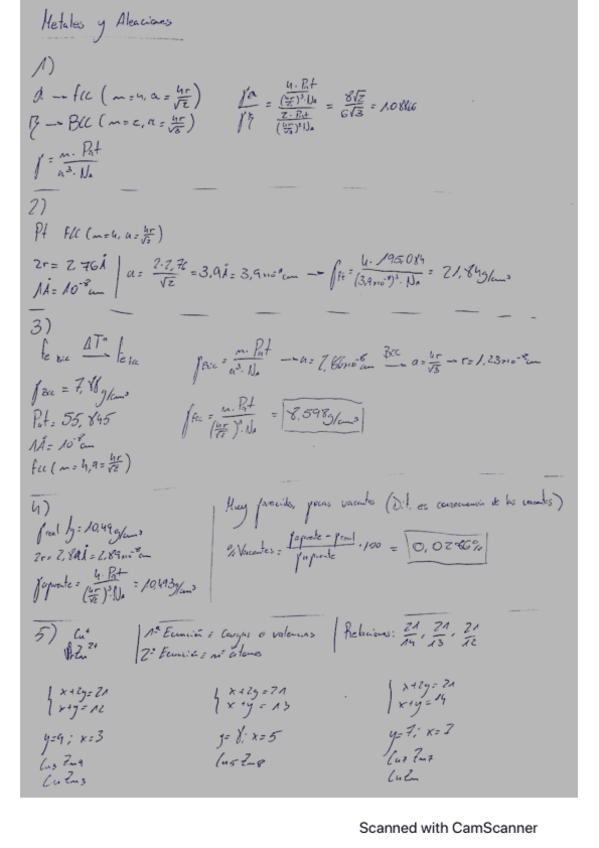 Metales y Aleaciones
1)
α → FCC (n=4, a = 4r/√2)
β → BCC (n=2, a = 4r/√3)
ρ = n·Pat / a³·Na
ρα/ρβ = (4·Pat / (4r/√2)³·Na) / (2·Pat / (4r/√3)³·Na) = 8√2/6√3 = 1.0886
2)
Pt FCC (n=4, a = 4r/√2)
2r = 2,76Å
1Å = 10⁻⁸ cm
a = 2·2,76/√2 = 3,9Å = 3,9x10⁻⁸ cm → ρPt = 4·195,084 / (3,9x10⁻⁸)³·Na = 21,84 g/cm³
3)
Fe BCC → ΔTª → Fe FCC
ρBCC = 7,88 g/cm³
Pat = 55,845
1Å = 10⁻⁸ cm
FCC (n=4, a = 4r/√2)
ρBCC = n·Pat / a³·Na → a = 2,86x10⁻⁸ cm → BCC → a = 4r/√3 → r = 1,23x10⁻⁸ cm
ρFCC = n·Pat / (4r/√2)³·Na = 8,598 g/cm³
4)
ρreal Ag = 10,49 g/cm³
2r = 2,89Å = 2,89x10⁻⁸ cm
ρaparente = 4·Pat / (4r/√2)³·Na = 10,493 g/cm³
Muy parecidos, pocas vacantes (Dif. es consecuencia de las vacantes)
%Vacantes = ρaparente − ρreal / ρaparente · 100 = 0,0286%
5)
Cu⁺
Zn²⁺
1ª Ecuación = cargas o valencias
2ª Ecuación = nº átomos
Relaciones: 21/14, 21/13, 21/12
x+2y=21
x+y=12
y=9; x=3
Cu3Zn9
CuZn3
x+2y=21
x+y=13
y=8; x=5
Cu5Zn8
x+2y=21
x+y=14
y=7; x=7
Cu7Zn7
CuZn
Scanned with CamScanner